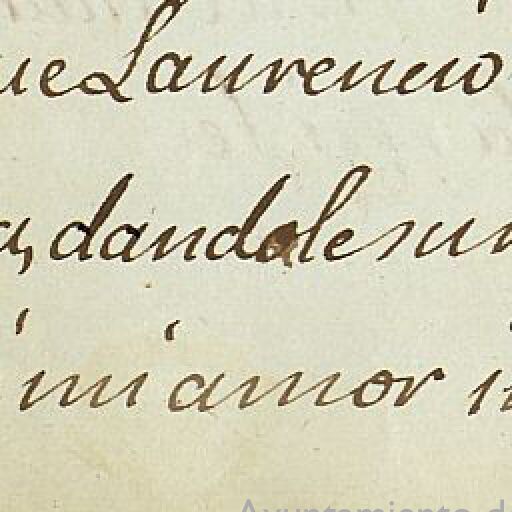 ue Laurencio
a, dandole sun
mi amor i
Ayuntamiento d